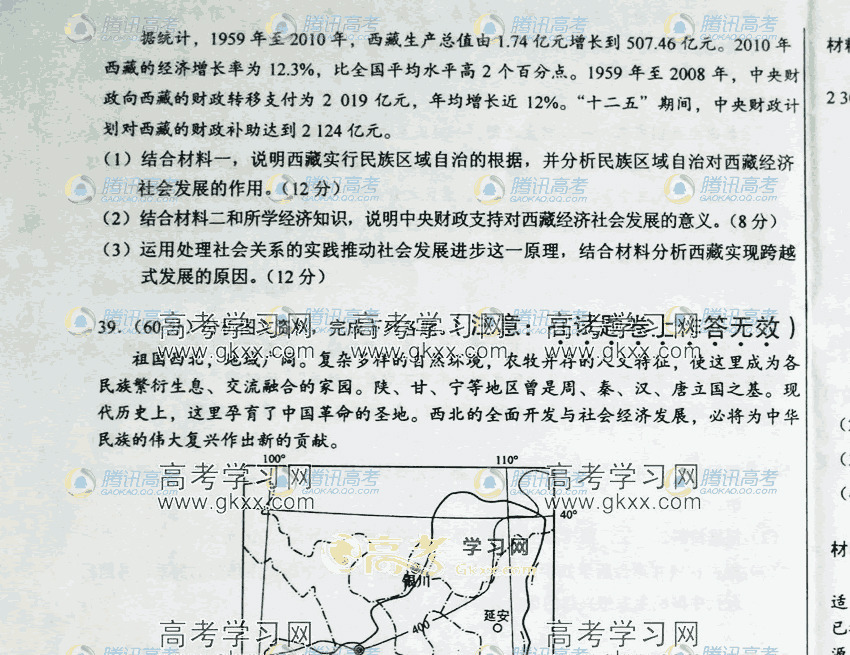 据统计，1959年至2010年，西藏生产总值由1.74亿元增长到507.46亿元。2010年
西藏的经济增长率为12.3%，比全国平均水平高2个百分点。1959年至2008年，中央财
政向西藏的财政转移支付为2 019亿元，年均增长近12%。“十二五”期间，中央财政计
划对西藏的财政补助达到2 124亿元。
（1）结合材料一，说明西藏实行民族区域自治的根据，并分析民族区域自治对西藏经济
社会发展的作用。（12分）
（2）结合材料二和所学经济知识，说明中央财政支持对西藏经济社会发展的意义。（8分）
（3）运用处理社会关系的实践推动社会发展进步这一原理，结合材料分析西藏实现跨越
式发展的原因。（12分）
39.（60
完成
答无效）
祖国西北，地域广阔。复杂多样的自然环境，农牧并存的人文特征，使这里成为各
民族繁衍生息、交流融合的家园。陕、甘、宁等地区曾是周、秦、汉、唐立国之基。现
代历史上，这里孕育了中国革命的圣地。西北的全面开发与社会经济发展，必将为中华
民族的伟大复兴作出新的贡献。
100°
110°
40°
银川
延安
400
材
2 3
材
适
已
源
腾讯高考
GAOKAO.QQ.COM
高考学习网
www.gkxx.com
高考学习网
www.gkxx.com
高考学习网
www.gkxx.com
高考学习网
www.gkxx.com
高考
学习网
Gkxx.com
高考学习网
高考学习网